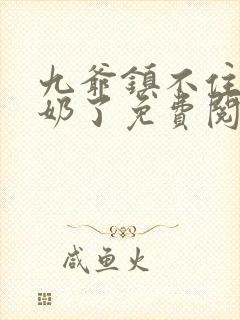 九爷镇不住
奶了免费阅
咸鱼火